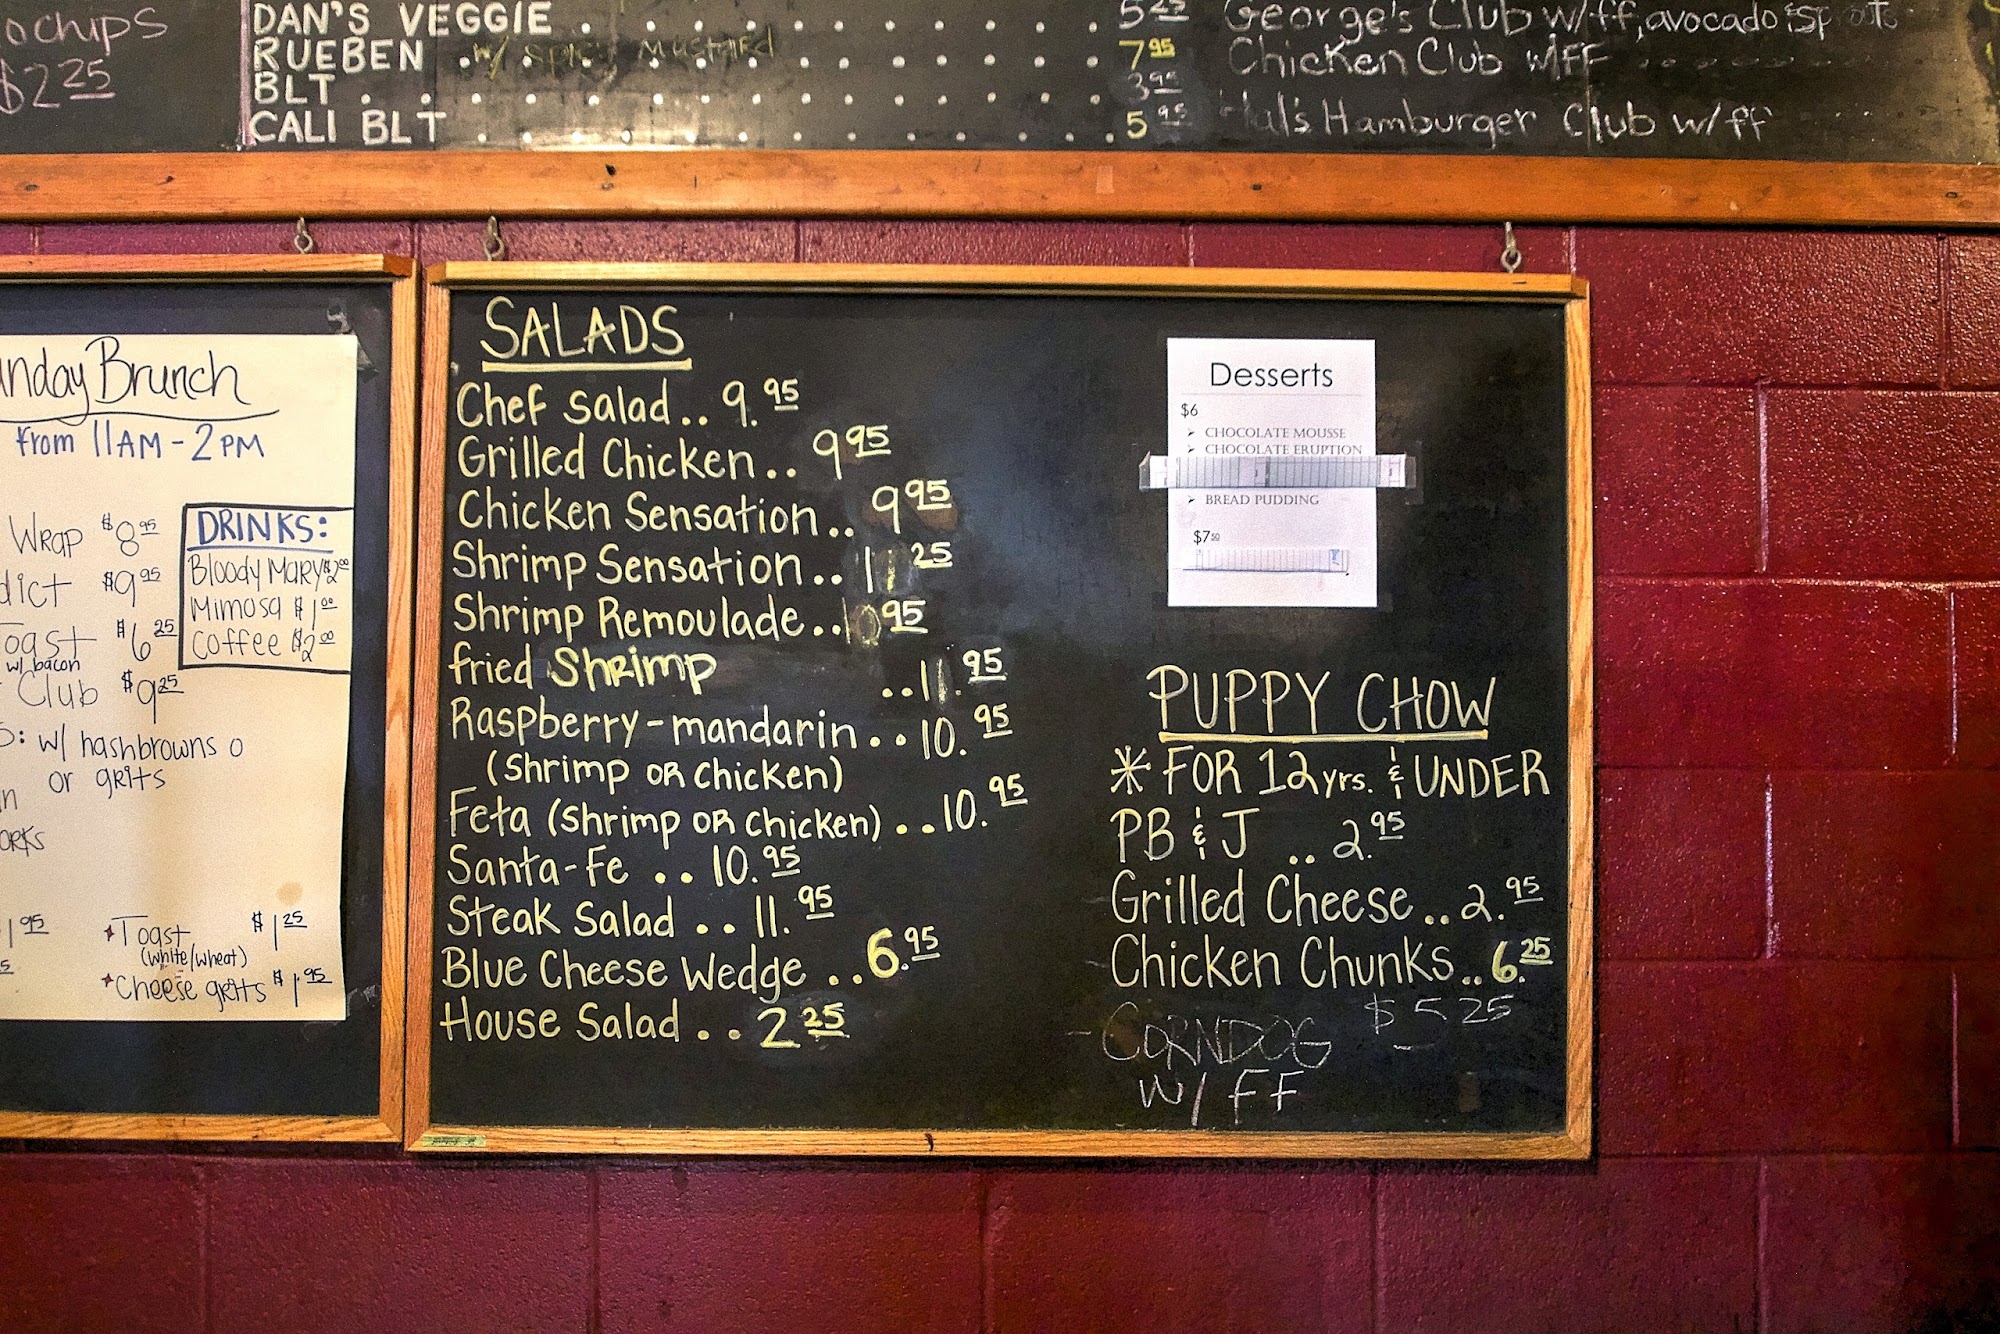 ochips
$2 25
DAN'S VEGGIE . . . . . . . . . . . . . . 5
RUEBEN w/ spicy mustard . . . . . . . . . 7 95
BLT . . . . . . . . . . . . . . . . 3 95
CALI BLT . . . . . . . . . . . . . . . 5 95
George's Club w/ff, avocado & sprouts
Chicken Club w/FF
Hal's Hamburger Club w/ff
nday Brunch
from 11AM - 2PM
Wrap $8 95
dict $9 95
oast $6 25
w/ bacon
Club $9 25
: w/ hashbrowns o
or grits
n
ORKS
1 95
Toast $1 25
(white/wheat)
Cheese grits $1.95
DRINKS:
Bloody Mary $2 00
Mimosa $1 00
Coffee $2 00
SALADS
Chef Salad.. 9.95
Grilled Chicken.. 9 95
Chicken Sensation.. 9 95
Shrimp Sensation.. 11 25
Shrimp Remoulade.. 10 95
fried Shrimp ..11.95
Raspberry-mandarin..10.95
(Shrimp or Chicken)
Feta (Shrimp or Chicken)..10.95
Santa-Fe ..10.95
Steak Salad ..11.95
Blue Cheese Wedge ..6.95
House Salad ..2 25
Desserts
$6
➢ CHOCOLATE MOUSSE
➢ CHOCOLATE ERUPTION
➢ BREAD PUDDING
$7 50
PUPPY CHOW
* FOR 12 yrs. & UNDER
PB & J ..2.95
Grilled Cheese..2.95
Chicken Chunks..6.25
- CORNDOG $5 25
w/ FF